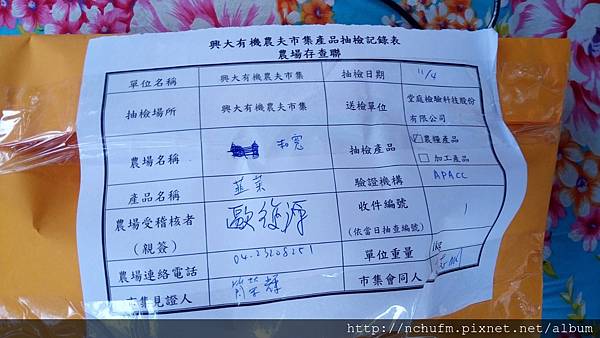 興大有機農夫市集產品抽檢記錄表
農場存查聯
單位名稱 興大有機農夫市集 抽檢日期 11/4
抽檢場所 興大有機農夫市集 送檢單位 堂庭檢驗科技股份
有限公司
農場名稱 和寬 抽檢產品 ☑農糧產品
□ 加工產品
產品名稱 韮菜 驗證機構 APACC
農場受稽核者 歐復源 收件編號 1
（親簽） (依當日抽查編號)
農場連絡電話 04.23208251 單位重量 1kg
市集見證人 市集會同人
http://nchufm.pixnet.net/album